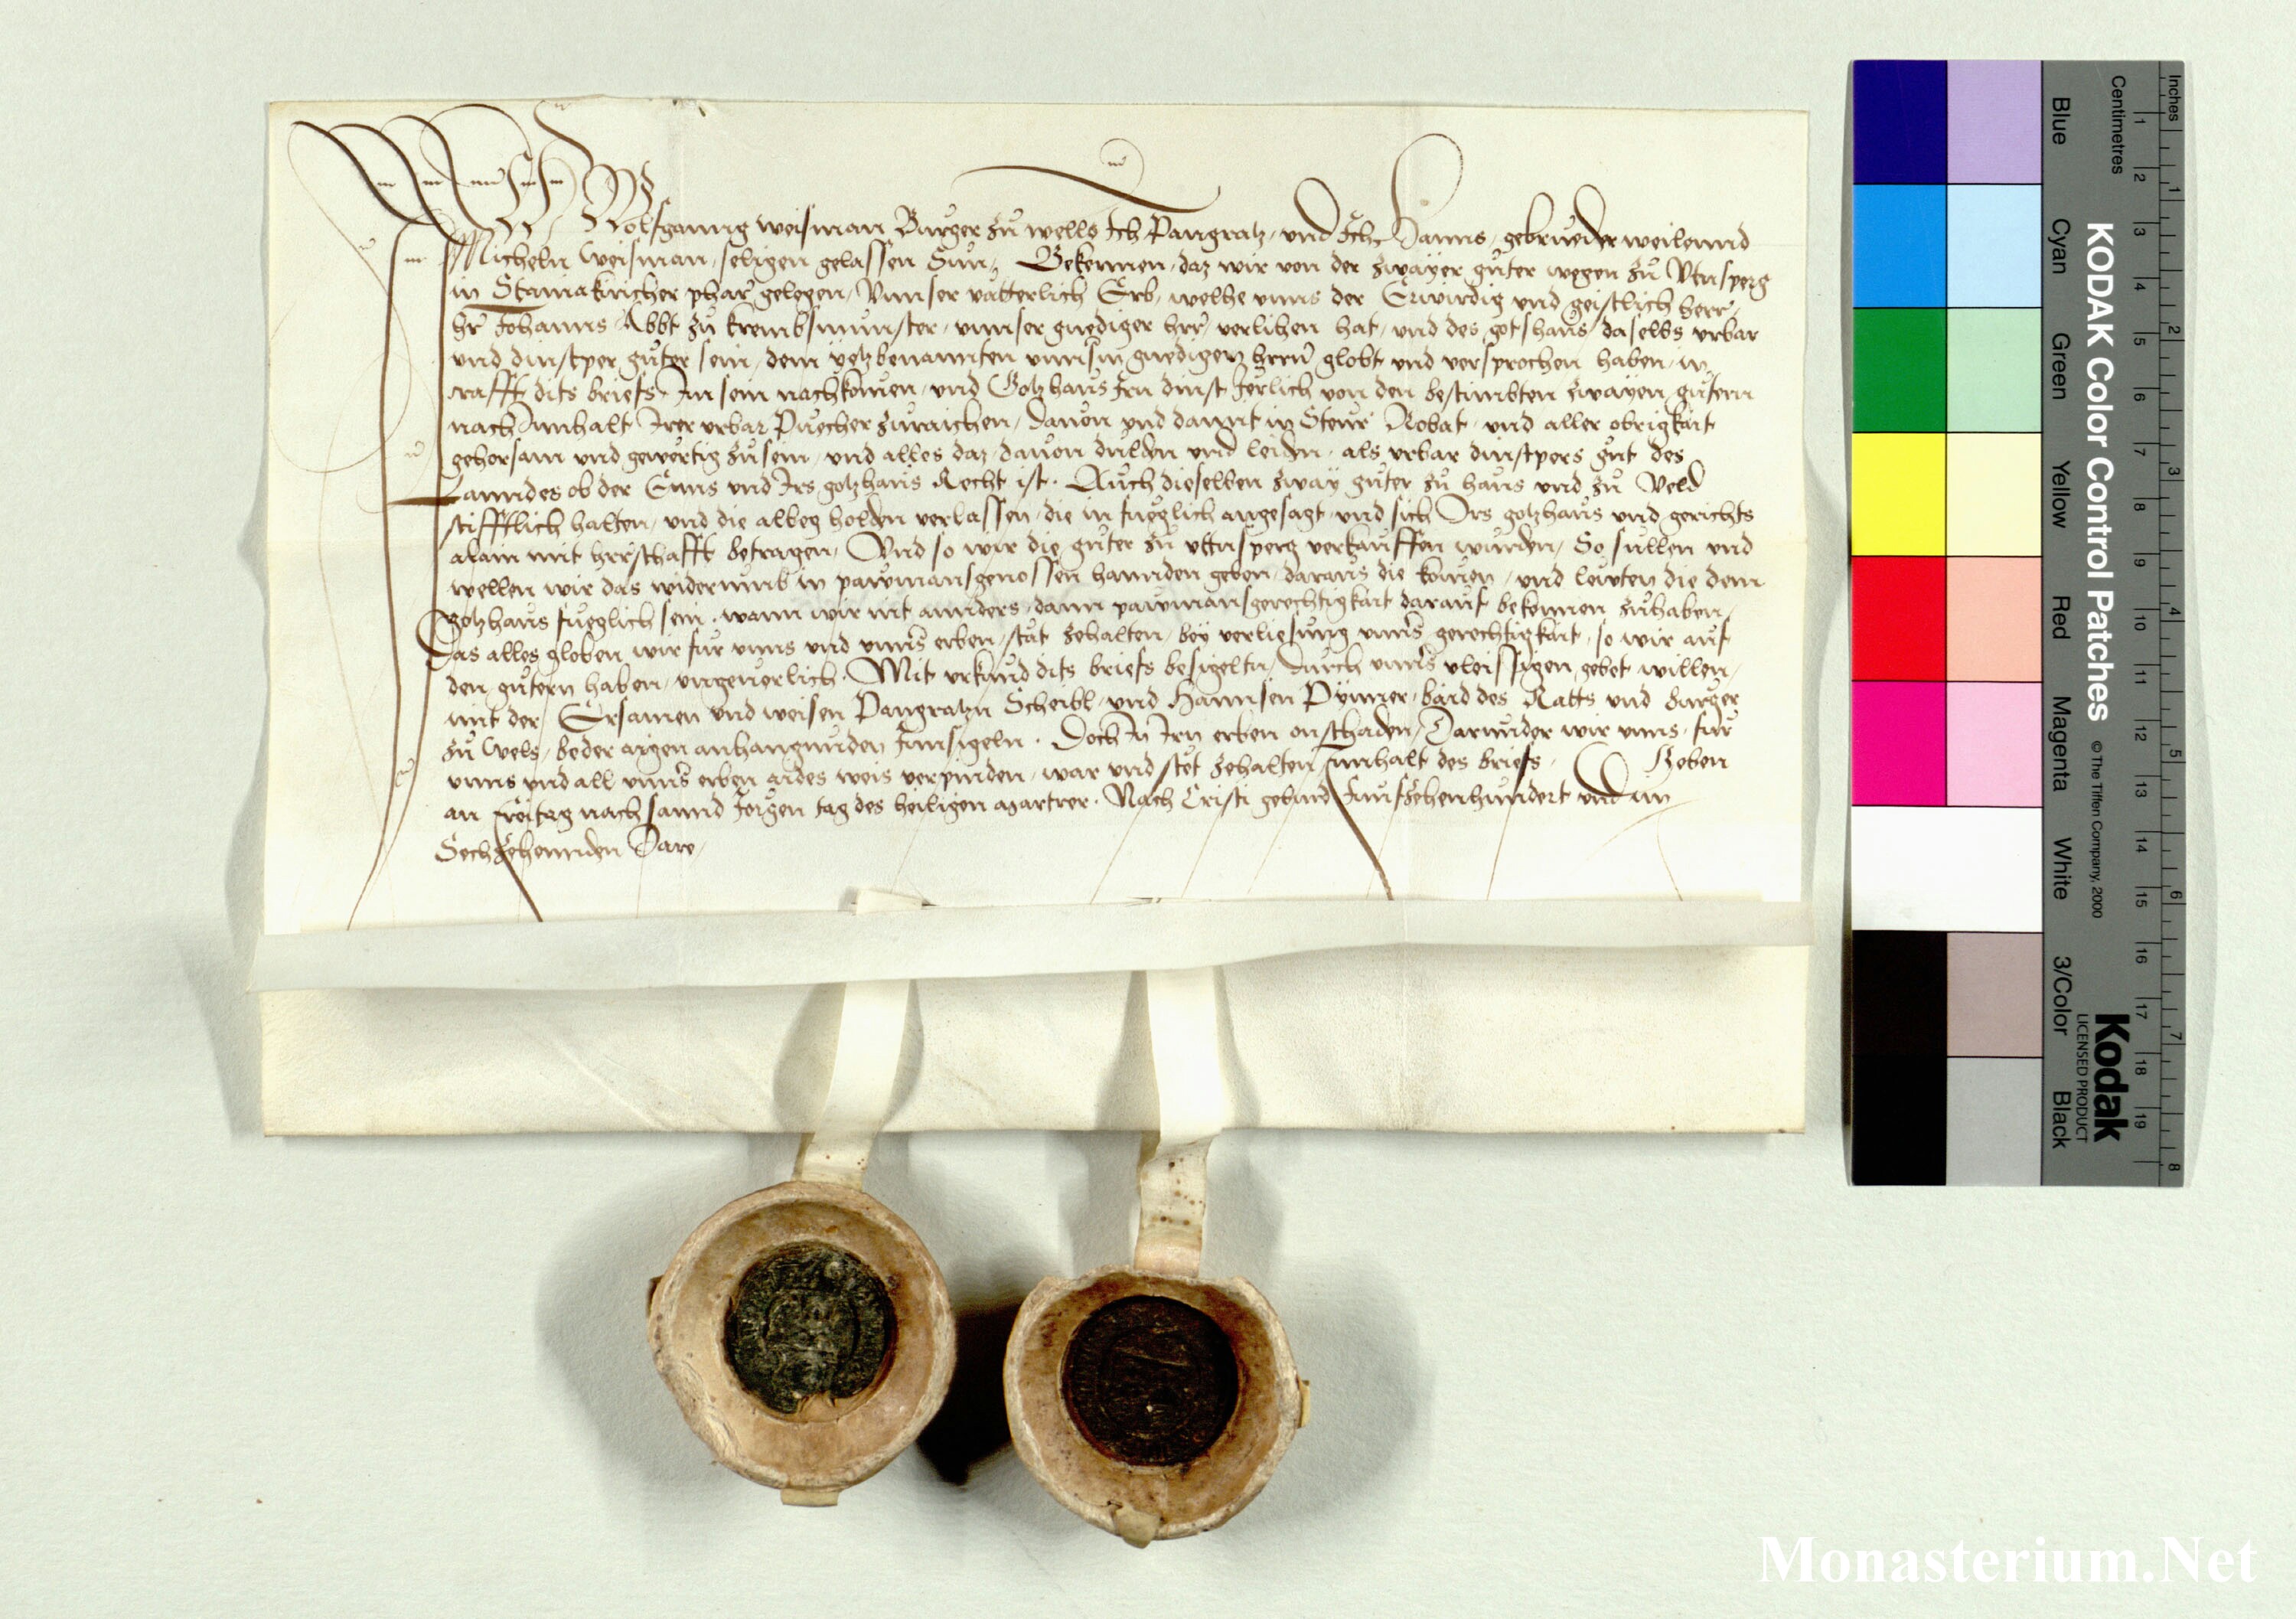 Ich Wolfganng weisman Burger zů wells Ich Pangratz, vnd Ich Hanns, gebrueder weilennd
Micheln Weisman, seligen gelassen Sün, Bekennen, daz wir von der zwayer güter wegen zů Vtnsperg
in Stainakiricher pharr gelegen, Vnnser vätterlich Erb, welhe vnns der Erwirdig vnd geistlich herr,
hr Johanns Abbt zů krembsmünster, vnnser gnediger hrr, verlihen hat, vnd des gotshaus daselbs vrbar
vnd dinstper güter sein, dem yetzbenannten vnnsrn gnedigen hrrn globt vnd versprochen haben, in
crafft dits briefs, Im sein nachkomen, vnd Gotzhaus Irn dinst Jerlich von den bestimbten zwayen gütern
nach Innhalt Irer vrbar Püecher züraichen, dauon vnd damit in Steur Robat, vnd aller obrigkait
gehorsam vnd gewertig züsein, vnd alles daz, dauon dulden vnd leiden, als vrbar dinstpers güt des
Lanndes ob der Enns vnd Irs gotzhaus Recht ist. Auch dieselben zway güter zů haus vnd zů Veld
stifftlich halten, vnd die albeg holden verlassen, die in fueglich angesagt, vnd sich Irs gotzhaus vnd gerichts
alain mit hrrschafft betragen, Vnd so wir die güter zů vttnsperg verkauffen würden, So sullen vnd
wellen wir das widerumb in pawmansgenossen hannden geben, daraus die komen, vnd lewten die dem
gotzhaus fueglich sein, wann wir nit annders, dann pawmansgerechtigkait darauf bekennen zühaben,
Das alles globen wir für vnns vnd vnnser erben, stät zehalten, bey verliesung vnnser gerechtigkait, so wir auf
den gütern haben, vngeuerlich. Mit vrkund dits briefs besigeltn, durch vnnser vleissigen gebet willen,
mit der Ersamen vnd weisen Pangratzn Scheibl, vnd Hannsen Pymer, baid des Ratts vnd burger
zů Wels, beder aigen anhangunden Innsigeln. Doch In Irn erben on schaden, Darunder wir vnns, für
vnns vnd all vnnser erben aides weis verpinden, war vnd stet zehalten Innhalt des briefs. Geben
an freitag nach sannd Jorgen tag des heiligen martrer. Nach Cristi geburd Funfzehenhundert vnd im
Sechzehennden Jare,
KODAK Color Control Patches
© The Tiffen Company, 2000
Kodak
LICENSED PRODUCT
Inches
1 2 3 4 5 6 7 8
Centimetres
1 2 3 4 5 6 7 8 9 10 11 12 13 14 15 16 17 18 19
Blue
Cyan
Green
Yellow
Red
Magenta
White
3/Color
Black
Monasterium.Net